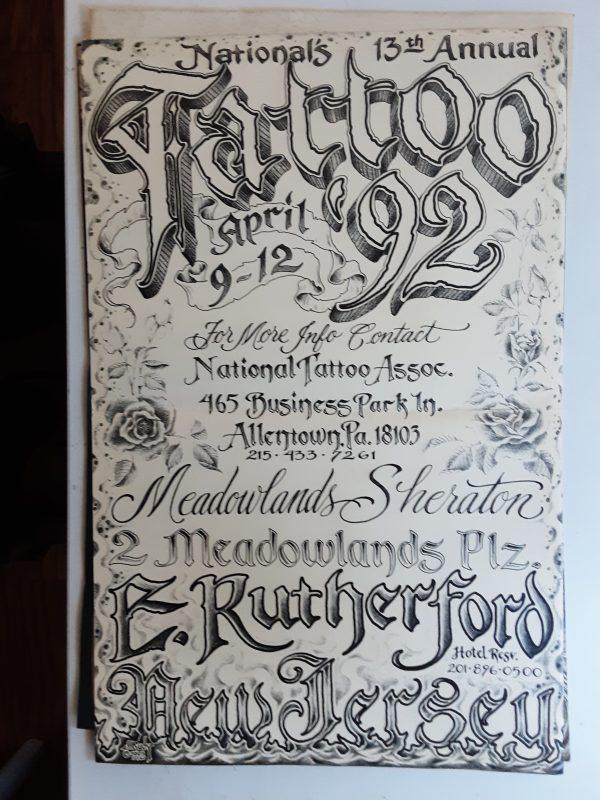 National's 13th Annual
Tattoo
'92
April
9-12
For More Info Contact
National Tattoo Assoc.
465 Business Park ln.
Allentown, Pa. 18103
215·433·7261
Meadowlands Sheraton
2 Meadowlands Plz.
E. Rutherford
Hotel Resv.
201·896·0500
New Jersey